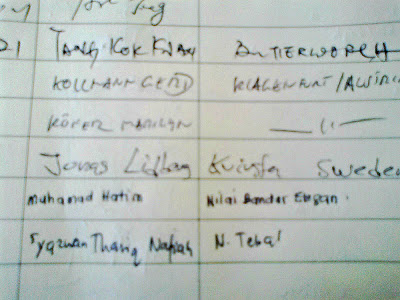 21 Tang Kok Kwai Butterworth
KOLLMANN GERD KLAGENFURT/AUSTRIA
KÖFER MARILYN — 11 —
Jonas Sweden
Muhamad Hatim Nilai Bandar Ekspan.
Syazwan Thariq Nafiah N. Tebal